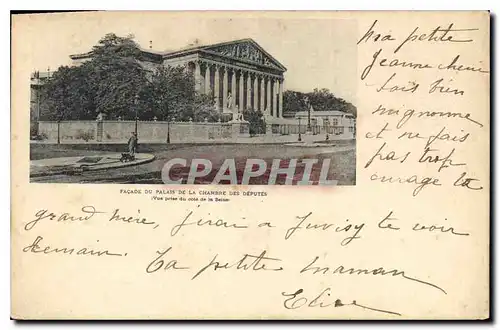 Ma petite
Jeanne chérie
sois bien
mignonne
et ne fais
pas trop
enrage ta
FAÇADE DU PALAIS DE LA CHAMBRE DES DÉPUTÉS
(Vue prise du côté de la Seine)
CPARAMA
grand'mère, J'irai à Juvisy te voir
demain.
Ta petite maman
Elise